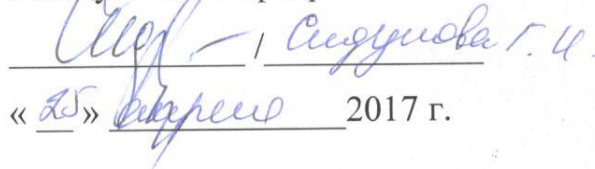 / Сидунова Г. И.
« 25 » апреля 2017 г.